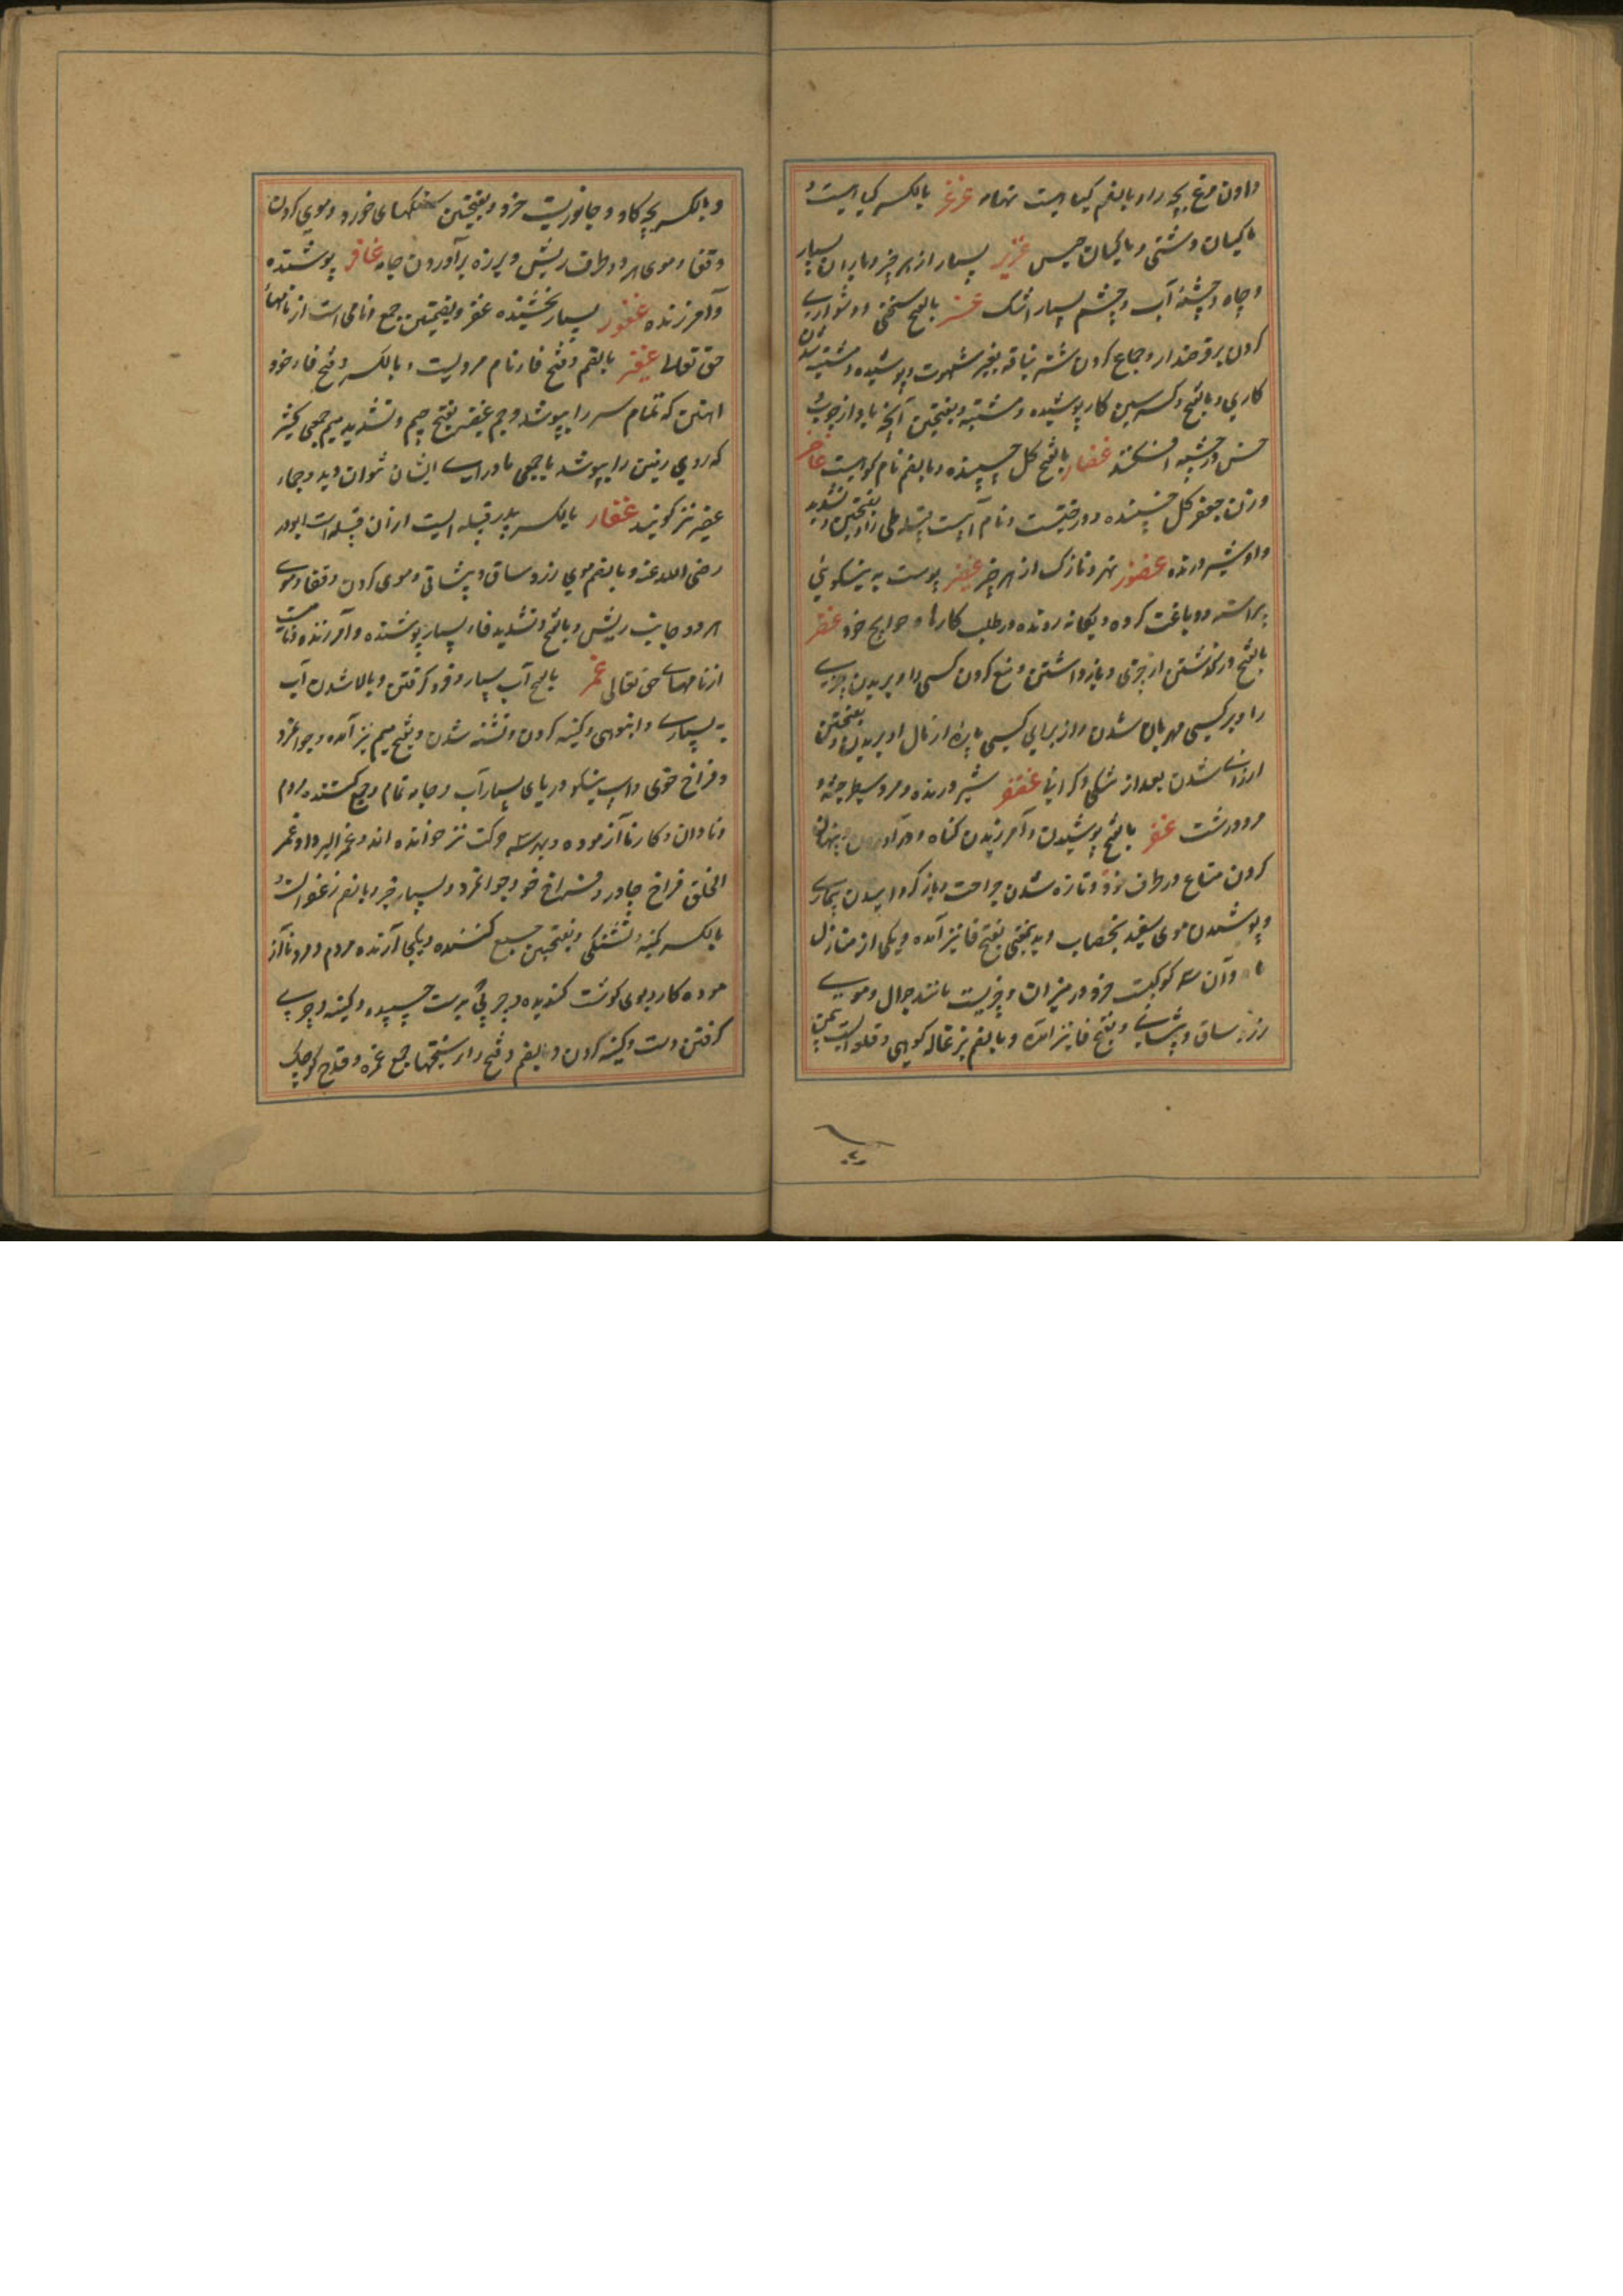 دادن مرغ بچه را و بالضم گیاهیست غرغر بالکسر گیاهیست و
ماکیان دشتی و ماکیان حبش غزیر بسیار از هر چیز و باران بسیار
و چاه و چشمهٔ آب و چشم بسیار اشک عسر بالفتح سختی و دشواری
کردن بر قرضدار و جماع کردن شتر بناقه بغیر شهوت و پوشیده و مشتبه شدن
کاری و بالفتح و کسر سین کار پوشیده و مشتبه و بفتحتین آنچه باد از چوب و
خس در چشمه افکند غضار بالفتح گل چسپنده و بالضم نام کوهیست غاضر
وزن جعفر گل چسپنده و درختیست و نام آبیست قبیله طی را و بفتحتین و تشدید
واو شیر درنده غضور نهر و نازک از هر چیز غضیر پوست به نیکویی
پیراسته و دباغت کرده و پگاه رونده در طلب کارها و حوایج خود غضر
بالفتح در گذشتن از چیزی و باز داشتن و منع کردن کسی را و بریدن چیزی
را و بر کسی مهربان شدن و از برای کسی پاره از مال او بریدن و بفتحتین
ارزان شدن بعد از تنگی و گرانی غضنفر شیر درنده و مرد سطبر جثه و
مرد درشت غفر بالفتح پوشیدن و آمرزیدن گناه و در آوردن و پنهان
کردن متاع در ظرف خود و تازه شدن جراحت و باز گردانیدن بیماری
و پوشیدن موی سفید بخضاب و بدین معنی بفتح فا نیز آمده و یکی از منازل
ماه و آن سه کوکبست خرد در میزان و چیزیست مانند جوال و موی
ریزه ساق و پیشانی و بفتح فا نیز آمده و بالضم بزغاله کوهی و قلعه ایست بیمن
و بالکسر بچه گاو و جانوریست خرد و بفتحتین سنگهای خورد و موی گردن
و قفا و موی هر دو طرف ریش و پرزه برآوردن جامه غافر پوشنده
و آمرزنده غفور بسیار بخشنده غفر و بضمتین جمع و نامی است از نامهای
حق تعالی غفیر بالضم و فتح فا نام مردیست و بالکسر و فتح فا خود
آهنین که تمام سر را بپوشد و جم غفیر بفتح جیم و تشدید میم جمعی کثیر
که روی زمین را بپوشد یا جمعی ماورای ایشان نتوان دید و جماء
غفیر نیز گویند غفار بالکسر پدر قبیله ایست از آن قبیله است ابوذر
رضی الله عنه و بالضم موی ریزه ساق و پیشانی و موی گردن و قفا و موی
هر دو جانب ریش و بالفتح و تشدید فا بسیار پوشنده و آمرزنده و نامیست
از نامهای حق تعالی غمر بالفتح آب بسیار و فرو گرفتن و بالا شدن آب
به بسیاری و انبوهی و کینه کردن و تشنه شدن و بفتح میم نیز آمده و جوانمرد
و فراخ خوی و اسب نیکو و دریای بسیار آب و جامه تمام و جمع کننده مردم
و نادان و کار ناآزموده و بهر سه حرکت نیز خوانده اند و غمر الردا و غمر
الخلق فراخ چادر و فراخ خو و جوانمرد و بسیار خیر و بالضم زعفرانست و
بالکسر کینه و تشنگی و بفتحتین جمع کننده و یکجا آرنده مردم و مرد ناآز
موده کار و بوی گوشت گندیده و چربی بدست چسپیده و کینه و چربی
گرفتن دست و کینه کردن و بالضم و فتح را سختیها جمع غمره و قدح کوچک